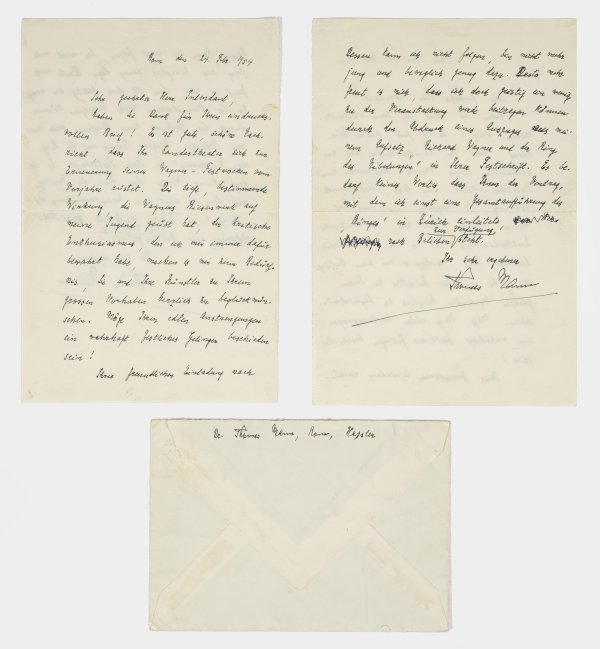 Rom den 24. Febr. 1954
Sehr geehrter Herr Intendant,
haben Sie Dank für Ihren eindrucks-
vollen Brief! Es ist gute, schöne Nach-
richt, dass Ihr Landestheater sich zur
Erneuerung seiner Wagner-Festwochen vom
Vorjahre rüstet. Die tiefe, bestimmende
Wirkung, die Wagners Riesenwerk auf
meine Jugend geübt hat, der kritische
Enthusiasmus, den ich mir immer dafür
bewahrt habe, machen es mir zum Bedürf-
nis, Sie und Ihre Künstler zu Ihrem
grossen Vorhaben herzlich zu beglückwün-
schen. Möge Ihren edlen Anstrengungen
ein wahrhaft festliches Gelingen beschieden
sein!
Ihrer freundlichen Einladung nach
Dessau kann ich nicht folgen, bin nicht mehr
jung und beweglich genug dazu. Desto mehr
freut es mich, dass ich doch geistig ein wenig
zu der Veranstaltung werde beitragen können
durch den Abdruck eines Auszuges aus mei-
nem Aufsatz „Richard Wagner und der Ring
des Nibelungen" in Ihrer Festschrift. Es be-
darf keines Wortes, dass Ihnen der Vortrag,
mit dem ich einst eine Gesamtaufführung des
„Ringes" in Zürich einleitete,
zur Verfügung
nach Belieben steht.
Ihr sehr ergebener
Thomas Mann
Dr. Thomas Mann, Rom, Hassler